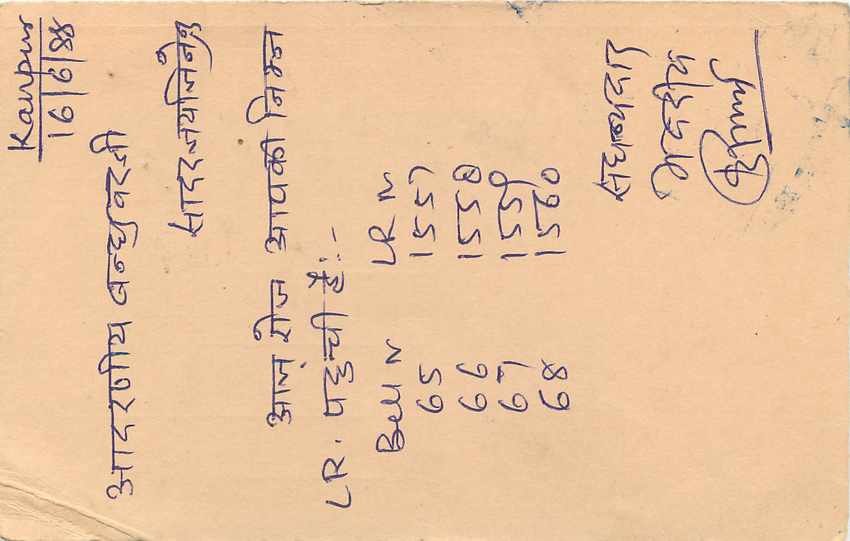 Kanpur
16/6/88
आदरणीय बन्धुवरजी
सादर जयजिनेन्द्र
आज रोज आपकी निम्न
LR. पहुची है:-
Bell N LR N
65 1557
66 1558
67 1559
68 1560
सधन्यवाद